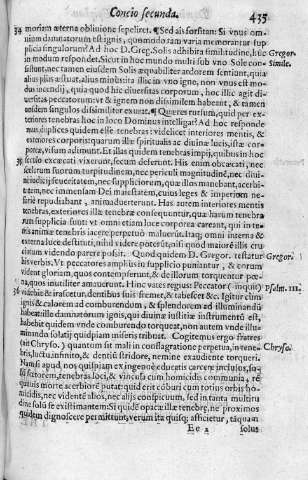 Concio secunda. 435
34 moriam æterna obliuione sepeliret. ¶ Sed ais forsitan: Si vnus om-
nium damnatorum est ignis, quomodo tam varia memorantur sup-
plicia singulorum? Ad hoc D. Greg. Solis adhibita similitudine, huc Gregor.
in modum respondet. Sicut in hoc mundo multi sub vno Sole con- Simile.
sistunt, nec tamen eiusdem Solis ardorem sentiunt, quia
alius plus æstuat, alius minus: ita illic in vno igne, non vnus est mo-
dus incendij, quia quod hic diuersitas corporum, hoc illic agit di-
uersitas peccatorum: vt & ignem non dissimilem habeant, & tamen
eosdem singulos dissimiliter exurat. ¶ Quæres rursum, quid per ex-
teriores tenebras hoc in loco Dominus intelligat? Ad hoc
duplices quidem esse tenebras: videlicet interiores mentis, &
exteriores corporis: quarum illæ spiritualia ac diuina lucis, istæ cor-
porea, visum adimunt. Et illas quidem tenebras impij, quibus in hoc
35 seculo excæcati vixerunt, secum deferunt. His enim obcæcati, nec
scelerum suorum turpitudinem, nec periculi magnitudinem, nec diui-
tem, nec immensam Dei maiestatem, cuius leges & imperium
repudiabant, animaduerterunt. Has autem interiores mentis
tenebras, exteriores illæ tenebræ consequuntur,
supplicia sunt: vt omni etiam luce corporea careant, qui in
animæ tenebris iacere perpetuo maluerunt. Itaq; omni interna &
externa luce destituti, nihil videre poterunt, nisi quod maiori illis cru-
ciatum videndo parere possit. Quod quidem D. Gregor. testatur Gregor.
his verbis. Vt peccatores amplius in supplicio puniantur, & eorum
vident gloriam, quos contempserunt, & de illorum torquentur pœ-
na, quos inutiliter amauerunt. Hinc vates regius: Peccator (inquit) Psalm. 111.
36 videbit & irascetur, dentibus suis fremet, & tabescet &c. Igitur cùm
ignis & calorem ad comburendum, & splendorem ad illuminandum
habeat: ille damnatorum ignis, qui diuinæ iustitiæ instrumentum est,
habebit quidem vnde comburendo torqueat, non autem vnde illu-
minando solatij quidpiam miseris tribuat. Cogitemus ergo fratres
(ait Chryso.) quantum sit mali in conflagratione perpetua, in tene- Chryso.
bris, luctu infinito, & dentiū stridore, nemine exaudire torqueri.
Nam si apud nos, quispiam ex ingenuæ educatis carcere inclusos,
fœtorem, tenebras, loci, & vincula cum homicidis communia,
quauis morte acerbiora putat: quid erit coburi cum totius orbis ho-
micidis, nec videntē alios, nec alijs conspicuum, sed in tanta multitu-
dine solū se existimantem? Si quidē opacæ illæ tenebrę, ne proximos
quidem dignoscere permittunt, verum ita quisq; afficietur, tāquam
Ee 2 solus